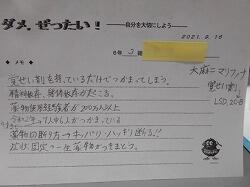 ダメ。ぜったい!
―自分を大切にしよう―
2021. 9. 16
6年3組
・覚せい剤を持っているだけでつかまってしまう。
・精神依存、身体依存が起こる。
・薬物使用経験者が200万人以上
人中1人がつかまっている
・薬物の断り方→キッパリ・ハッキリ断る!!
一生薬物がつきまとう。
大麻=マリファナ
覚せい剤、
LSD,